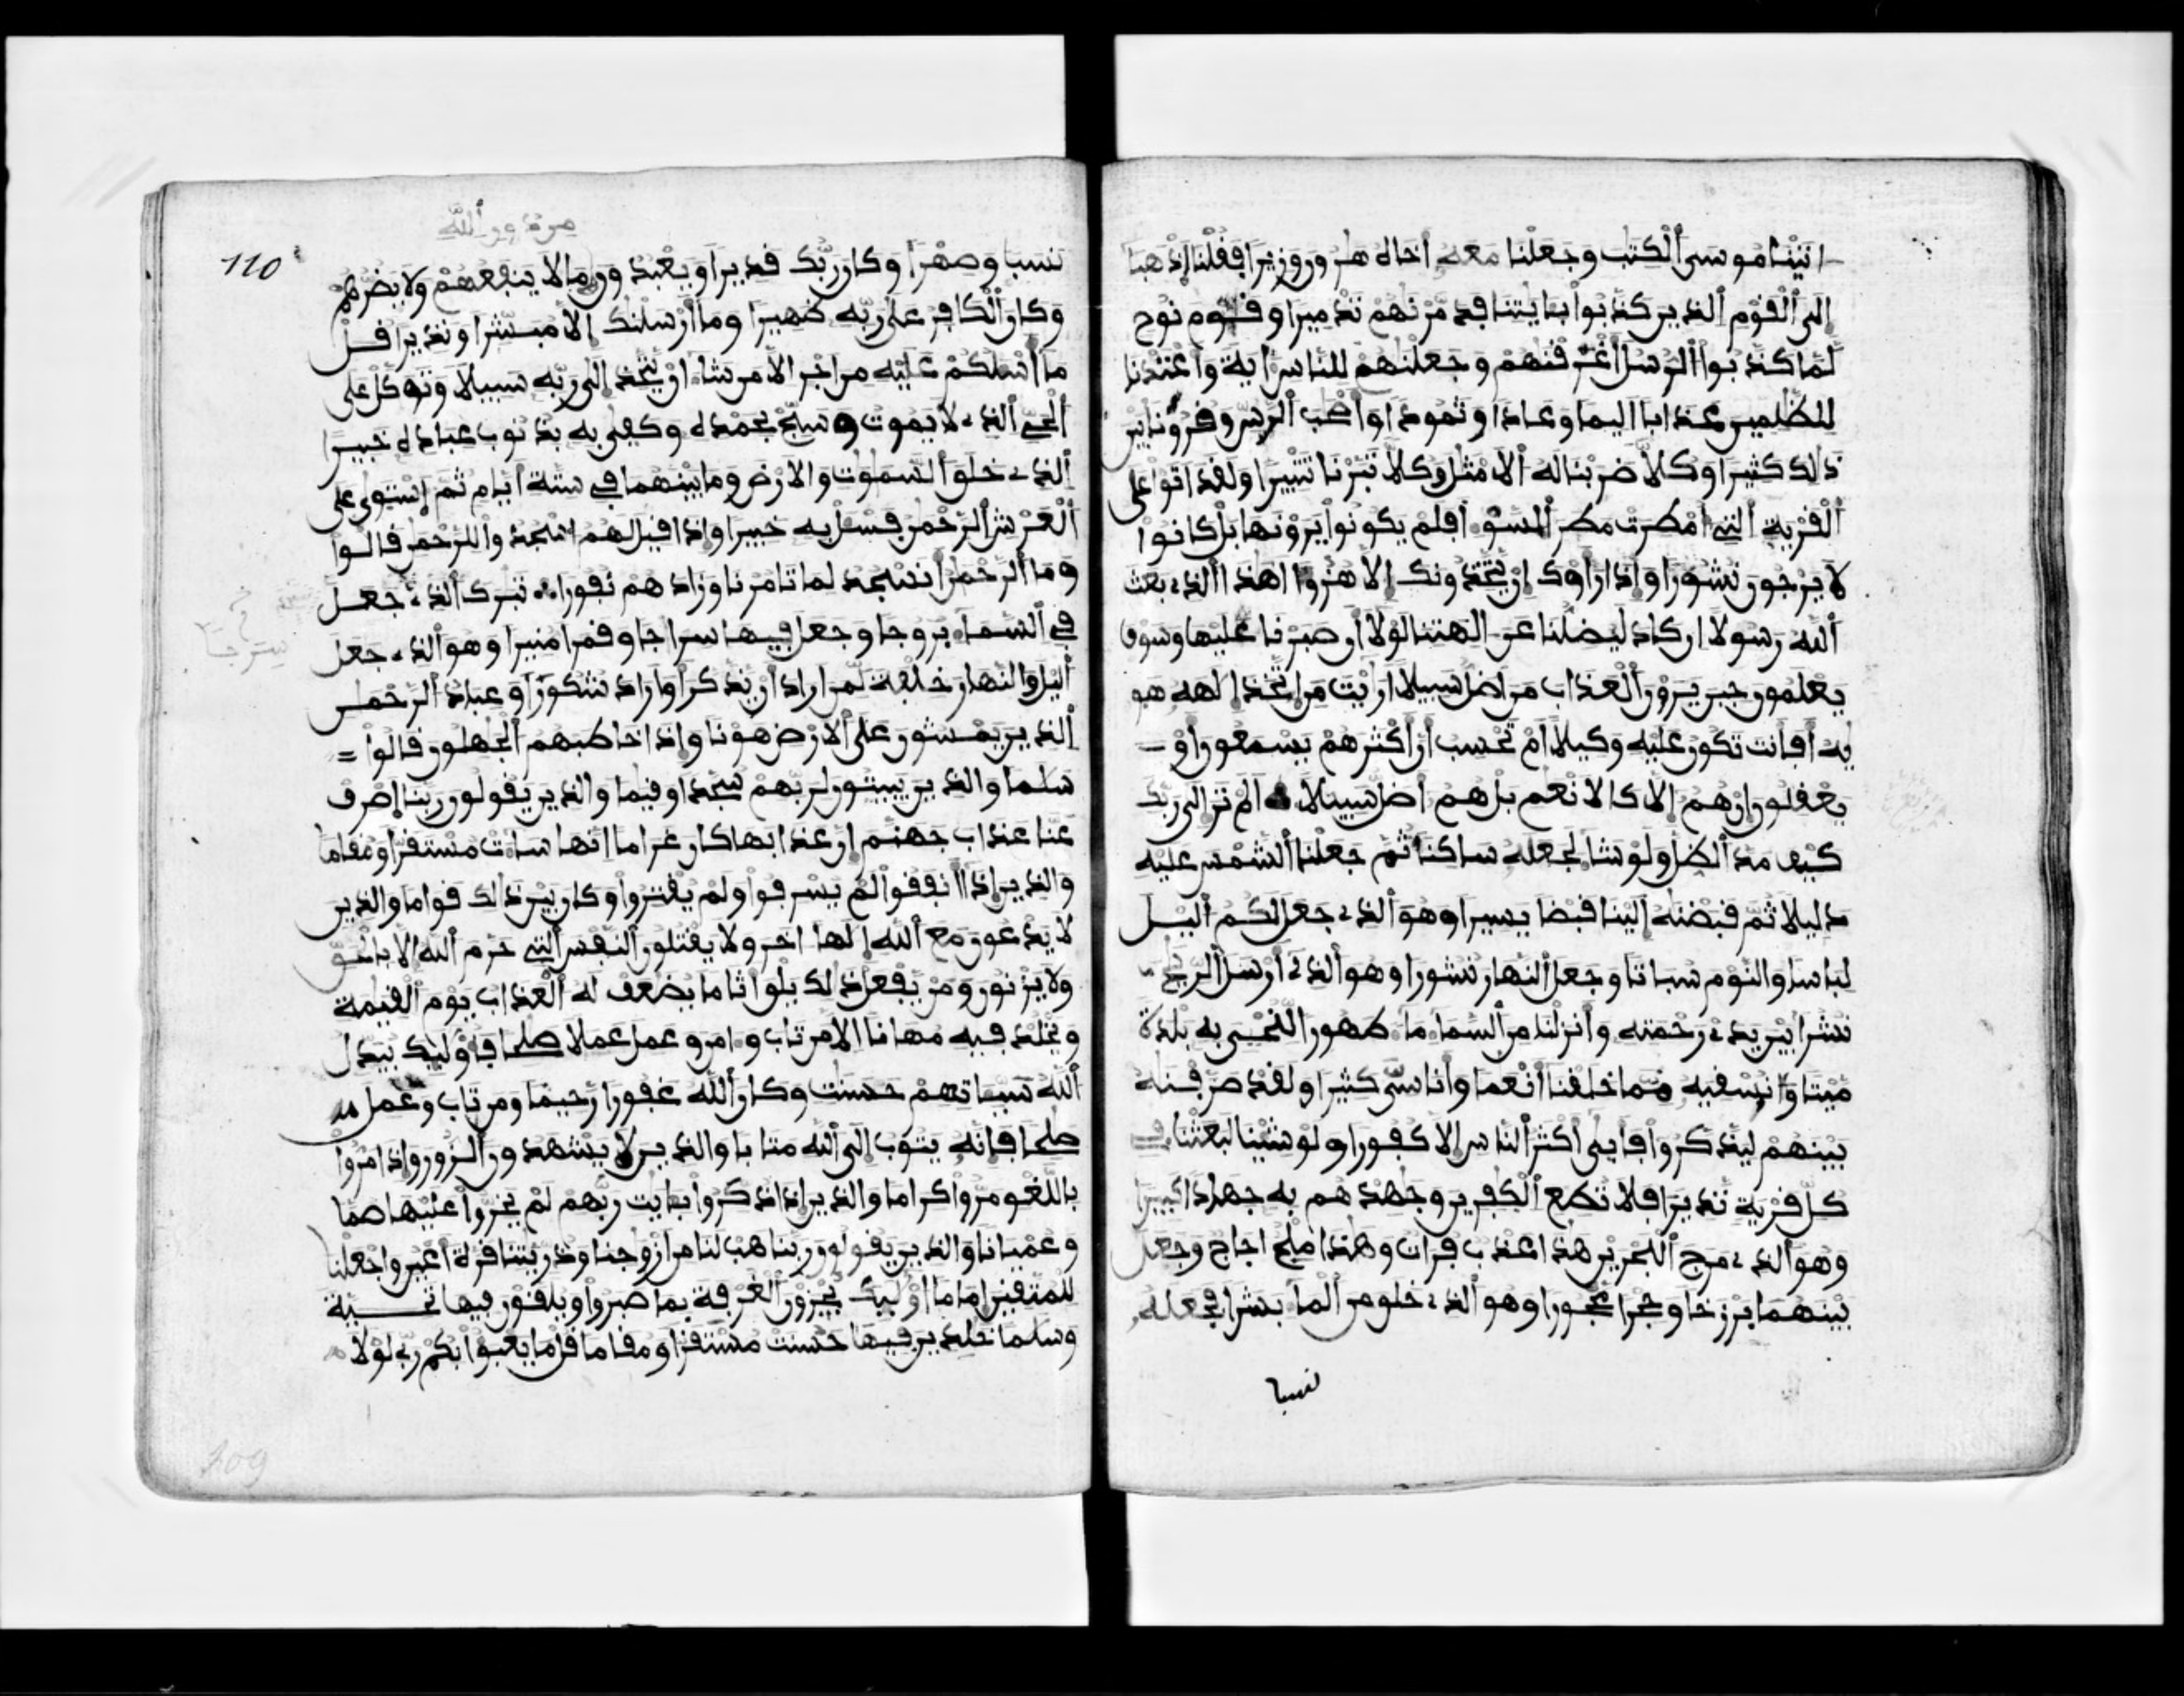 اتينا موسى ٱلكتب وجعلنا معه أخاه هرون وزيرا فقلنا إذهبا
إلى ٱلقوم ٱلذين كذبوا بـٔايتنا فدمرنهم تدميرا وقوم نوح
لما كذبوا ٱلرسل أغرقنهم وجعلنهم للناس ءاية وأعتدنا
للظلمين عذابا اليما وعادا وثمودا وأصحب ٱلرس وقرونا بين
ذلك كثيرا وكلا ضربنا له ٱلامثل وكلا تبرنا تتبيرا ولقد اتوا على
ٱلقرية ٱلتي أمطرت مطر ٱلسوء أفلم يكونوا يرونها بل كانوا
لا يرجون نشورا وإذا راوك إن يتخذونك إلا هزوا أهذا ٱلذي بعث
ٱلله رسولا ان كاد ليضلنا عن الهتنا لولا أن صبرنا عليها وسوف
يعلمون حين يرون ٱلعذاب من اضل سبيلا ارأيت من اتخذ إلهه هو
يه أفأنت تكون عليه وكيلا أم تحسب أن أكثرهم يسمعون أو
يعقلون إن هم إلا كالانعم بل هم أضل سبيلا ألم تر إلى ربك
كيف مد ٱلظل ولو شا لجعله ساكنا ثم جعلنا ٱلشمس عليه
دليلا ثم قبضنه إلينا قبضا يسيرا وهو ٱلذي جعل لكم ٱليل
لباسا والنوم سباتا وجعل ٱلنهار نشورا وهو ٱلذي أرسل ٱلريح
نشرا بين يدي رحمته وأنزلنا من ٱلسما ما طهورا لنحيي به بلدة
ميتا ونسقيه مما خلقنا أنعما وأناسي كثيرا ولقد صرفنه
بينهم ليذكروا فأبى أكثر ٱلناس إلا كفورا ولو شينا لبعثنا في
كل قرية نذيرا فلا تطع ٱلكفرين وجهدهم به جهادا كبيرا
وهو ٱلذي مرج ٱلبحرين هذا عذب فرات وهذا ملح اجاج وجعل
بينهما برزخا وحجرا محجورا وهو ٱلذي خلق من ٱلما بشرا فجعله
نسبا
من دون ٱلله
110
نسبا وصهرا وكان ربك قديرا ويعبدون ما لا ينفعهم ولا يضرهم
وكان ٱلكافر على ربه ظهيرا وما أرسلنك إلا مبشرا ونذيرا قل
ما أسلكم عليه من اجر الا من شا ان يتخذ إلى ربه سبيلا وتوكل على
ٱلحي ٱلذي لا يموت وسبح بحمده وكفى به بذنوب عباده خبيرا
ٱلذي خلق ٱلسموت والارض وما بينهما في ستة أيام ثم إستوى على
ٱلعرش ٱلرحمن فسل به خبيرا وإذا قيل لهم اسجدوا للرحمن قالوا
وما ٱلرحمن أنسجد لما تامرنا وزادهم نفورا تبرك ٱلذي جعل
في ٱلسما بروجا وجعل فيها سراجا وقمرا منيرا وهو ٱلذي جعل
ٱليل والنهار خلفة لمن اراد أن يذكر أو اراد شكورا وعباد ٱلرحمن
ٱلذين يمشون على ٱلارض هونا وإذا خاطبهم ٱلجهلون قالوا
سلما والذين يبيتون لربهم سجدا وقيما والذين يقولون ربنا إصرف
عنا عذاب جهنم إن عذابها كان غراما انها سات مستقرا ومقاما
والذين إذا أنفقوا لم يسرفوا ولم يقتروا وكان بين ذالك قواما والذين
لا يدعون مع ٱلله إلها اخر ولا يقتلون ٱلنفس ٱلتي حرم ٱلله إلا بالحق
ولا يزنون ومن يفعل ذلك يلق اثاما يضعف له ٱلعذاب يوم ٱلقيمة
ويخلد فيه مهانا الا من تاب وامن وعمل عملا صلحا فأوليك يبدل
ٱلله سيـاتهم حسنت وكان ٱلله غفورا رحيما ومن تاب وعمل
صلحا فإنه يتوب إلى ٱلله متابا والذين لا يشهدون ٱلزور وإذا مروا
باللغو مروا كراما والذين إذا ذكروا بـايت ربهم لم يخروا عليها صما
وعميانا والذين يقولون ربنا هب لنا من ازوجنا وذريتنا قرة أعين واجعلنا
للمتقين إماما اوليك يجزون ٱلغرفة بما صبروا ويلقون فيها تحية
وسلما خلدين فيها حسنت مستقرا ومقاما قل ما يعبؤا بكم ربي لولا
109